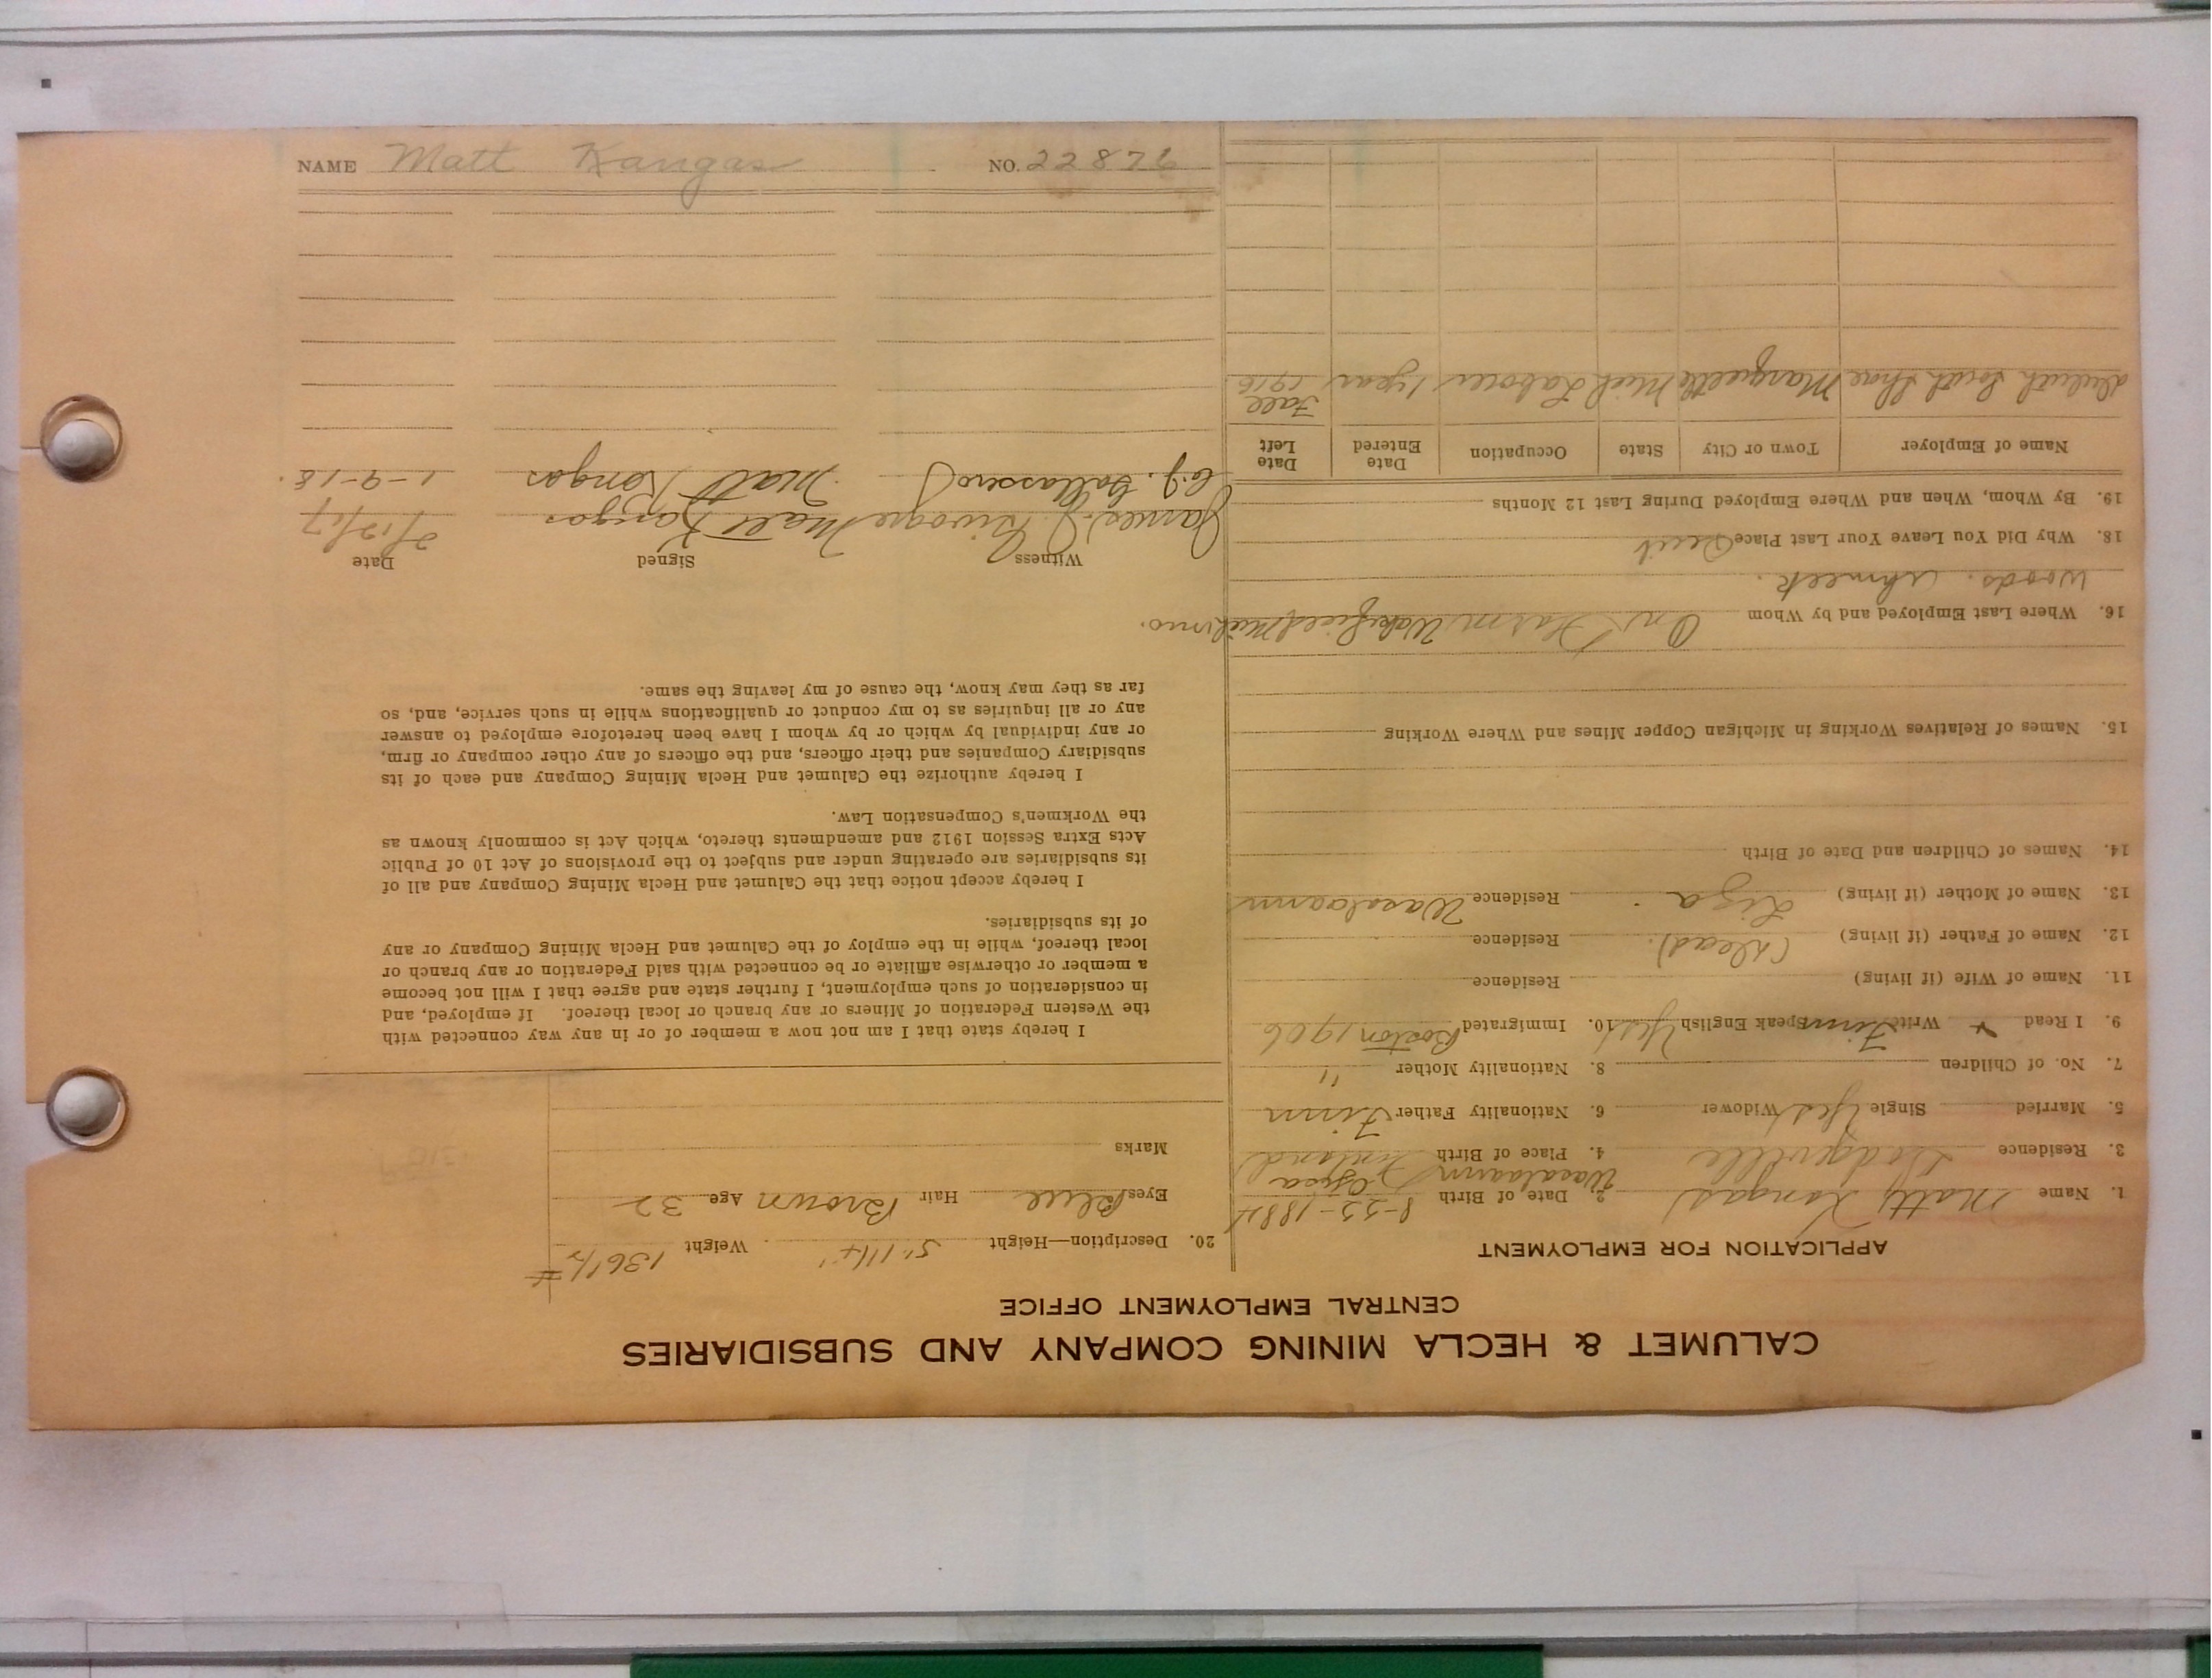 CALUMET & HECLA MINING COMPANY AND SUBSIDIARIES
CENTRAL EMPLOYMENT OFFICE
APPLICATION FOR EMPLOYMENT
1. Name Matt Kangas 2. Date of Birth
3. Residence 4. Place of Birth Finland
5. Married Single Yes Widower 6. Nationality Father Finn
7. No. of Children 8. Nationality Mother "
9. I Read Write Finn Speak English Yes 10. Immigrated Boston 1906
11. Name of Wife (if living) Residence
12. Name of Father (if living) (Dead). Residence
13. Name of Mother (if living) Liza Residence Wasalaann
14. Names of Children and Date of Birth
15. Names of Relatives Working in Michigan Copper Mines and Where Working
16. Where Last Employed and by Whom On Farm Wakefield Mich
Woods. Ahmeek.
18. Why Did You Leave Your Last Place
19. By Whom, When and Where Employed During Last 12 Months
Name of Employer Town or City State Occupation Date Entered Date Left
Duluth South Shore Marquette Mich Laborer 1 year Fall 1916
20. Description—Height Weight 136 1/2 #
Eyes Blue Hair Brown Age 32
Marks
I hereby state that I am not now a member of or in any way connected with
the Western Federation of Miners or any branch or local thereof. If employed, and
in consideration of such employment, I further state and agree that I will not become
a member or otherwise affiliate or be connected with said Federation or any branch or
local thereof, while in the employ of the Calumet and Hecla Mining Company or any
of its subsidiaries.
I hereby accept notice that the Calumet and Hecla Mining Company and all of
its subsidiaries are operating under and subject to the provisions of Act 10 of Public
Acts Extra Session 1912 and amendments thereto, which Act is commonly known as
the Workmen's Compensation Law.
I hereby authorize the Calumet and Hecla Mining Company and each of its
subsidiary Companies and their officers, and the officers of any other company or firm,
or any individual by which or by whom I have been heretofore employed to answer
any or all inquiries as to my conduct or qualifications while in such service, and, so
far as they may know, the cause of my leaving the same.
Witness Signed Date
James Matt Kangas 2/12/17
C.J. Matt Kangas 1-9-18.
NAME Matt Kangas NO. 22876